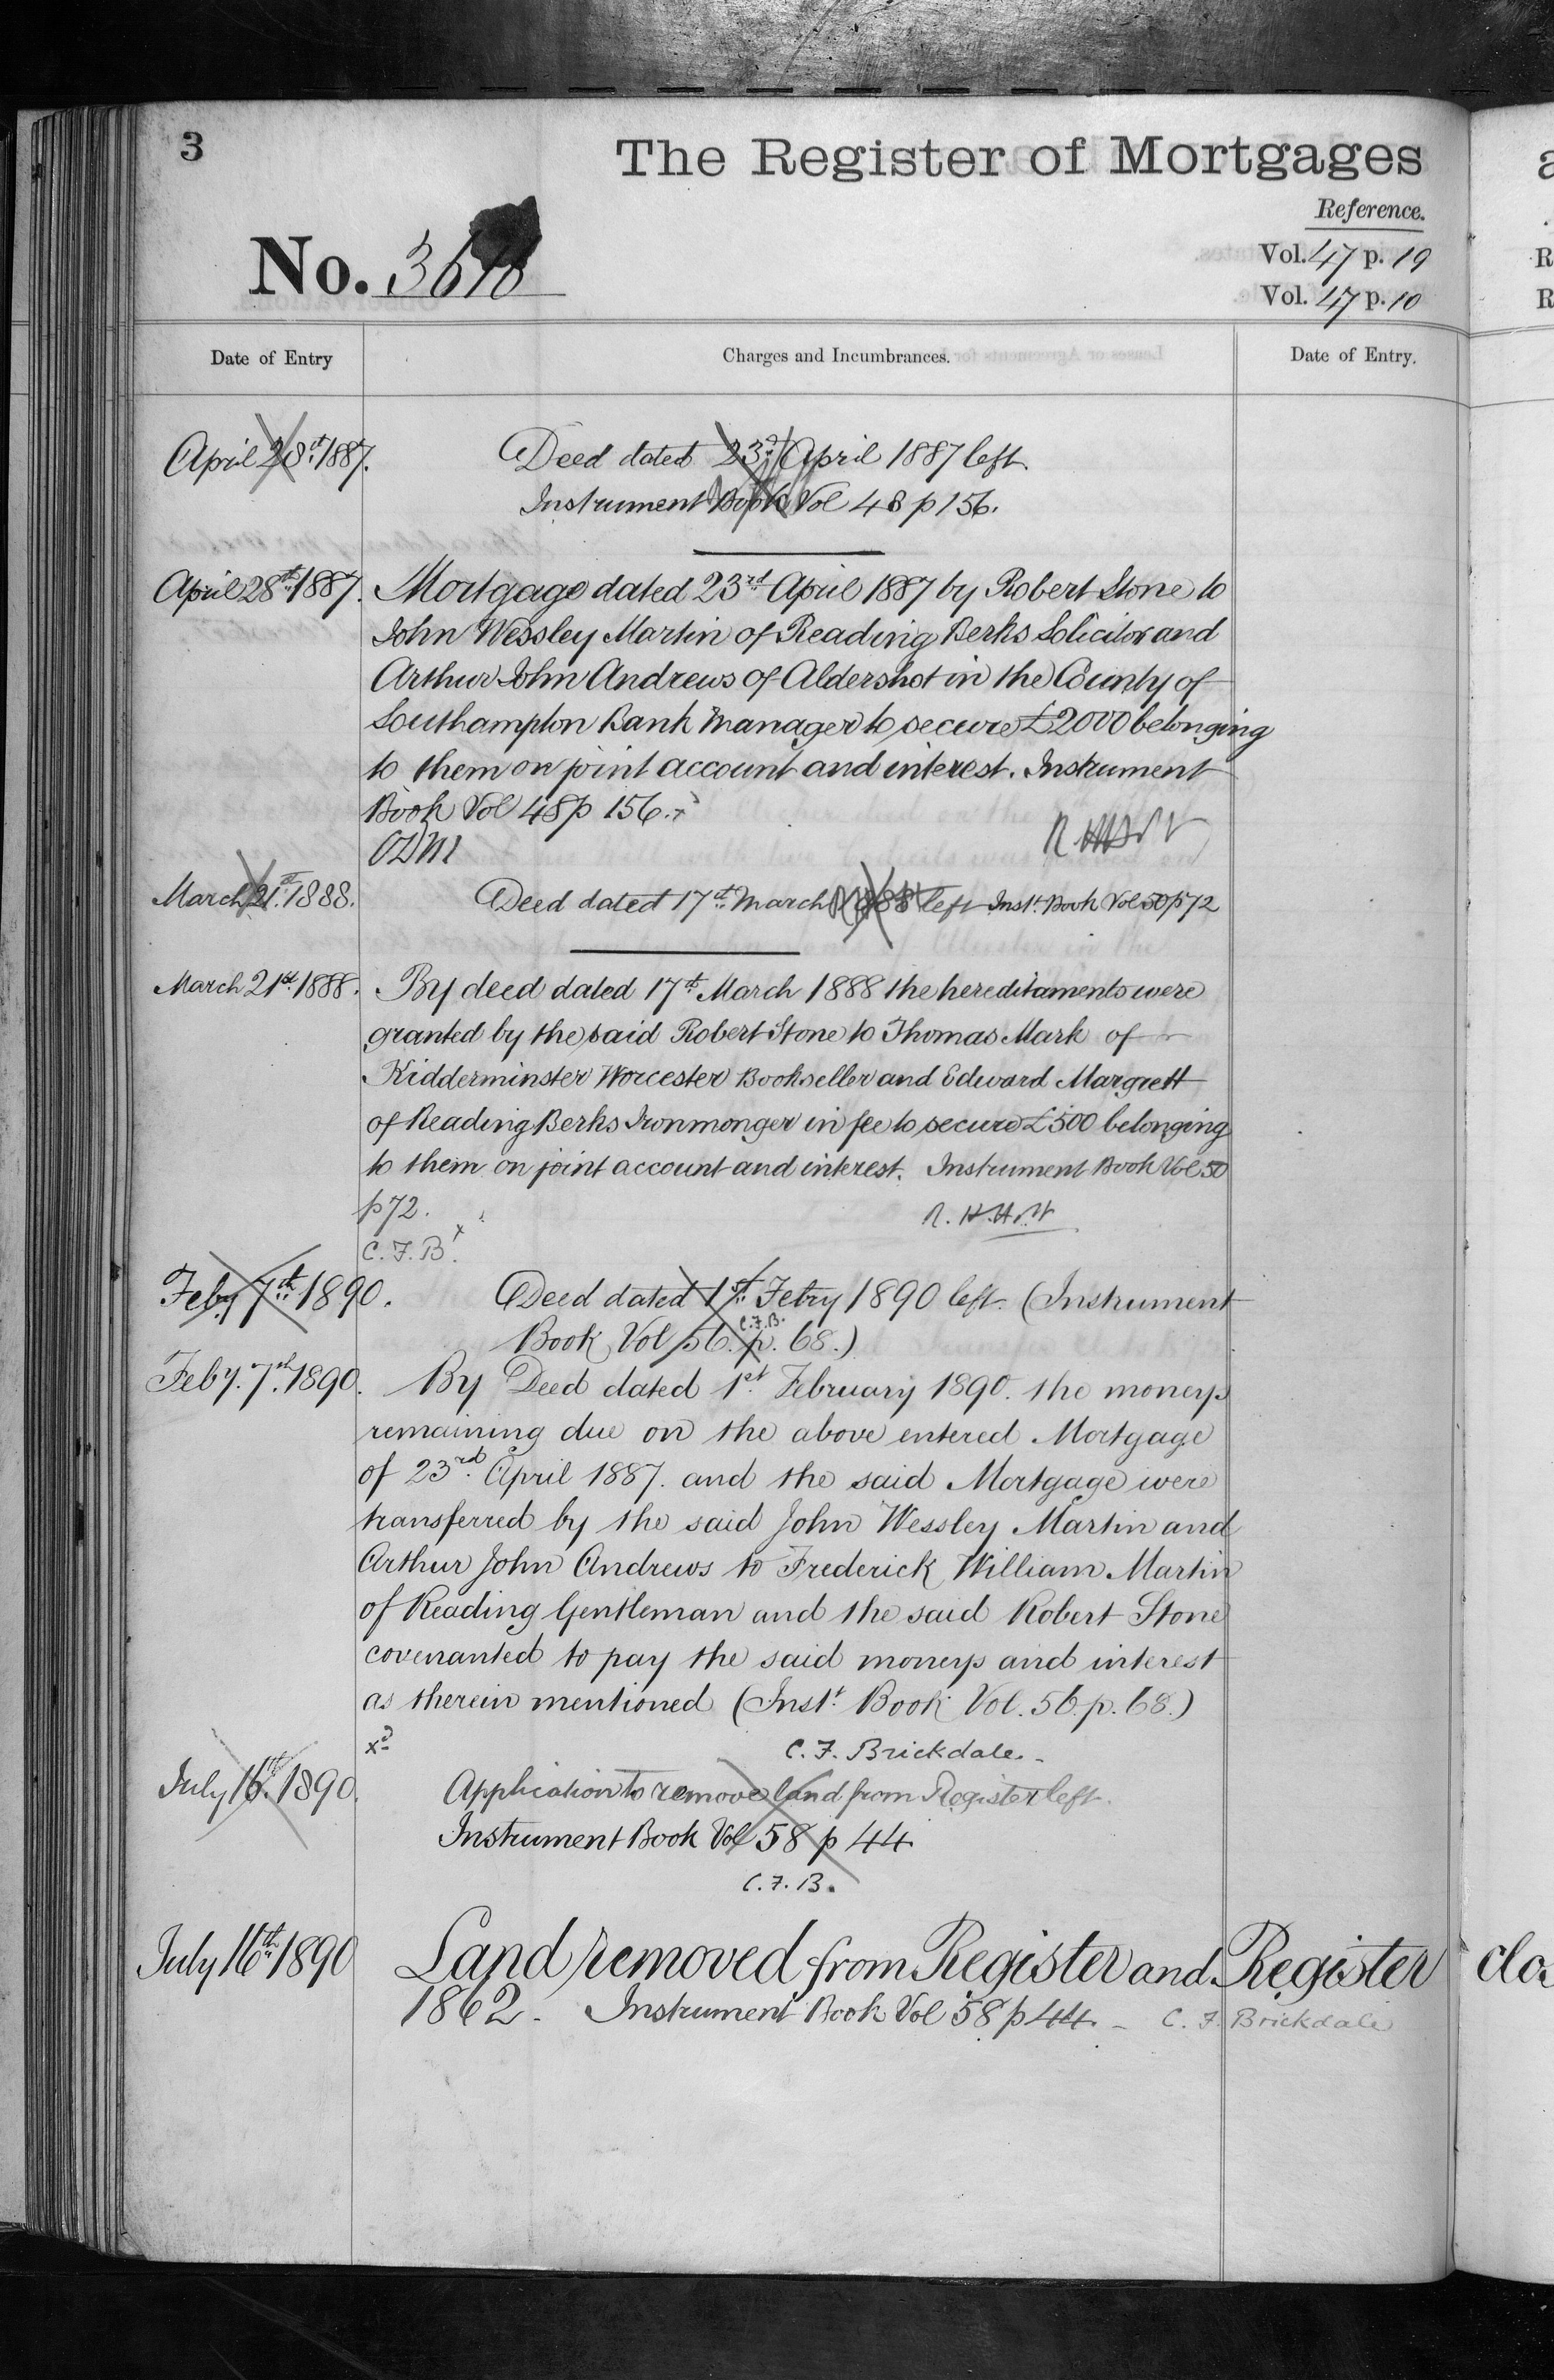 3
The Register of Mortgages
Reference.
No. 3618
Vol. 47 p. 19
Vol. 47 p. 10
Date of Entry
Charges and Incumbrances.
Date of Entry.
April 28th 1887. Deed dated 23rd April 1887 left
Instrument Book Vol 48 p 156.
April 28th 1887. Mortgage dated 23rd April 1887 by Robert Stone to
John Wessley Martin of Reading Berks Solicitor and
Arthur John Andrews of Aldershot in the County of
Southampton Bank Manager to secure £2000 belonging
to them on joint account and interest. Instrument
Book Vol 48 p 156. x
March 21st 1888. Deed dated 17th March 1888 left Inst. Book Vol 50 p 72
March 21st 1888. By deed dated 17th March 1888 the hereditaments were
granted by the said Robert Stone to Thomas Mark of
Kidderminster Worcester Bookseller and Edward Margrett
of Reading Berks Ironmonger in fee to secure £500 belonging
to them on joint account and interest. Instrument Book Vol 50
p 72.
C. F. B. x
Feby 7th 1890. Deed dated 1st Febry 1890 left. (Instrument
C.F.B.
Book Vol 56. p. 68.)
Feby. 7th 1890. By Deed dated 1st February 1890. the moneys
remaining due on the above entered Mortgage
of 23rd April 1887. and the said Mortgage were
transferred by the said John Wessley Martin and
Arthur John Andrews to Frederick William Martin
of Reading Gentleman and the said Robert Stone
covenanted to pay the said moneys and interest
as therein mentioned (Inst. Book Vol. 56. p. 68.)
xd C. F. Brickdale.
July 16th 1890. Application to remove land from Register left.
Instrument Book Vol 58 p 44
C. F. B.
July 16th 1890 Land removed from Register and Register clo
1862. Instrument Book Vol 58 p 44. - C. F. Brickdale